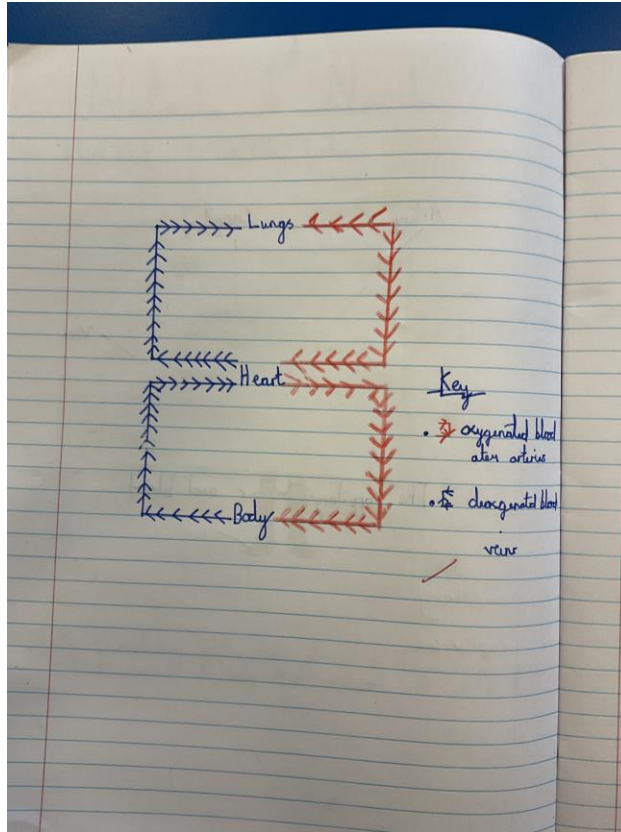 Lungs
Heart
Key
oxygenated blood
arteries
Body
deoxgenated blood
veins